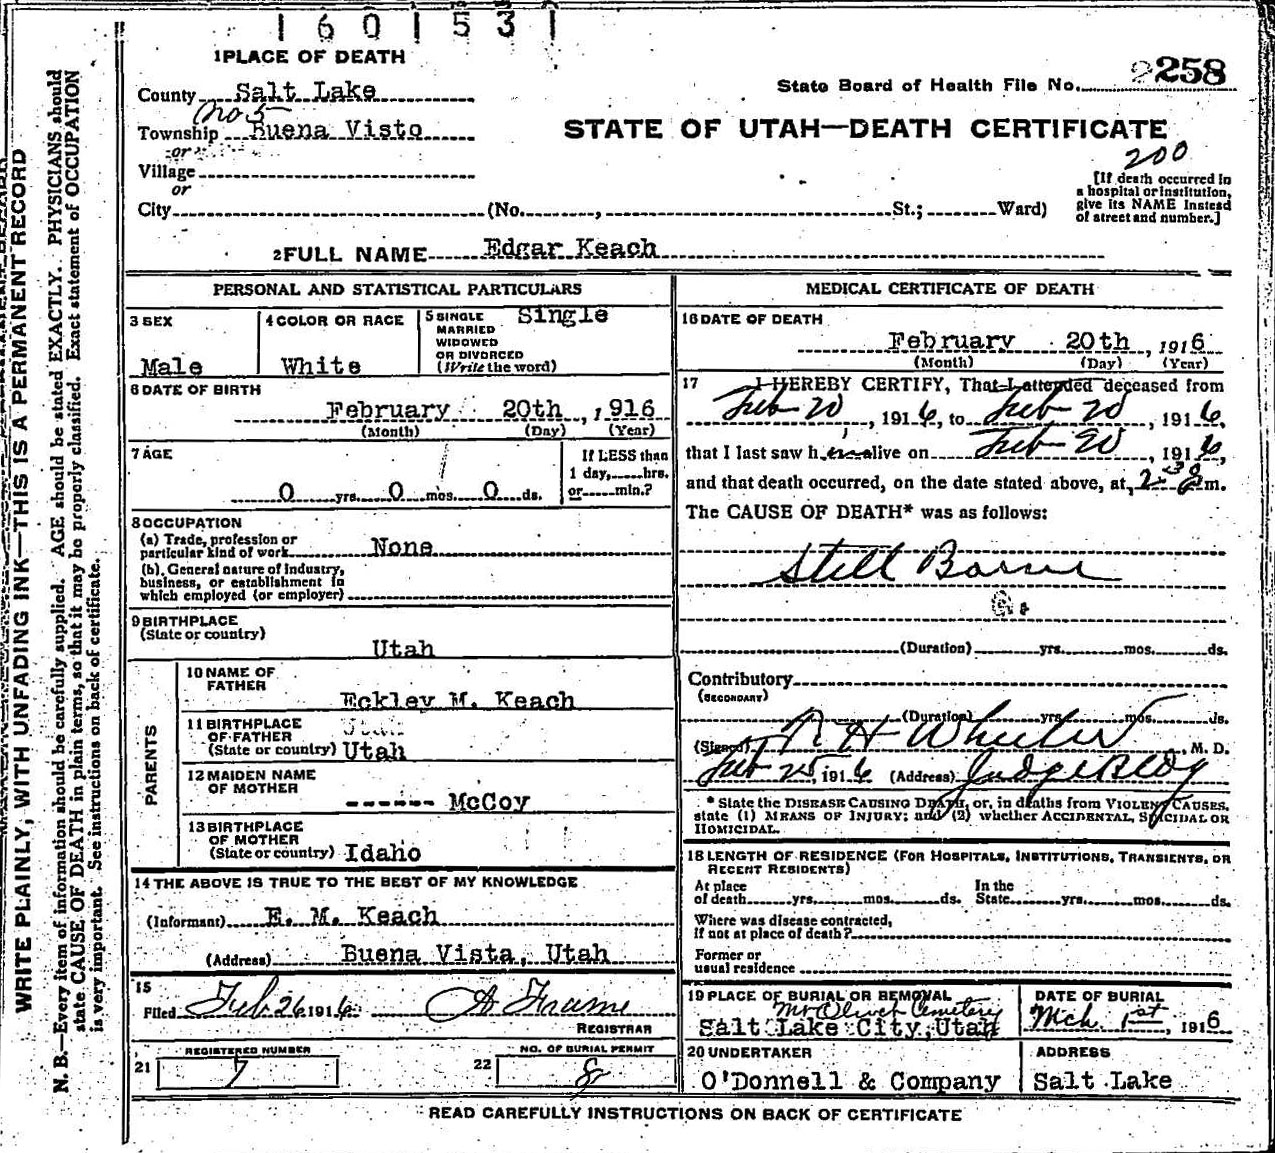 1601531
1 PLACE OF DEATH
County Salt Lake
State Board of Health File No. 2258
No 5
Township Buena Visto
STATE OF UTAH—DEATH CERTIFICATE
or
200
Village
or
[If death occurred in
a hospital or institution,
give its NAME instead
of street and number.]
City (No. , St.; Ward)
2 FULL NAME Edgar Keach
PERSONAL AND STATISTICAL PARTICULARS
3 SEX
Male
4 COLOR OR RACE
White
5 SINGLE
MARRIED
WIDOWED
OR DIVORCED
(Write the word)
Single
6 DATE OF BIRTH
February 20th, 1916
(Month) (Day) (Year)
7 AGE
0 yrs. 0 mos. 0 ds.
If LESS than
1 day, hrs.
or min.?
8 OCCUPATION
(a) Trade, profession or
particular kind of work None
(b). General nature of Industry,
business, or establishment in
which employed (or employer)
9 BIRTHPLACE
(State or country)
Utah
PARENTS
10 NAME OF
FATHER
Eckley M. Keach
11 BIRTHPLACE
OF FATHER
(State or country) Utah
12 MAIDEN NAME
OF MOTHER
------ McCoy
13 BIRTHPLACE
OF MOTHER
(State or country) Idaho
14 THE ABOVE IS TRUE TO THE BEST OF MY KNOWLEDGE
(Informant) E. M. Keach
(Address) Buena Vista, Utah
15
Filed Feb 26 1916 A Frame
REGISTRAR
21 REGISTERED NUMBER
7
22 NO. OF BURIAL PERMIT
8
MEDICAL CERTIFICATE OF DEATH
16 DATE OF DEATH
February 20th, 1916
(Month) (Day) (Year)
17 I HEREBY CERTIFY, That I attended deceased from
Feb 20, 1916, to Feb 20, 1916,
that I last saw h alive on Feb 20, 1916,
and that death occurred, on the date stated above, at, 2 30 m.
The CAUSE OF DEATH* was as follows:
Still Born
(Duration) yrs. mos. ds.
Contributory
(SECONDARY)
(Duration) yrs. mos. ds.
(Signed) R H Wheeler, M. D.
Feb 25, 1916 (Address) Judge Bldg
* State the DISEASE CAUSING DEATH, or, in deaths from VIOLENT CAUSES,
state (1) MEANS OF INJURY; and (2) whether ACCIDENTAL, SUICIDAL OR
HOMICIDAL.
18 LENGTH OF RESIDENCE (FOR HOSPITALS, INSTITUTIONS, TRANSIENTS, OR
RECENT RESIDENTS)
At place
of death yrs. mos. ds.
In the
State yrs. mos. ds.
Where was disease contracted,
If not at place of death?
Former or
usual residence
19 PLACE OF BURIAL OR REMOVAL
Mt Olivet Cemetery
Salt Lake City, Utah
DATE OF BURIAL
Mch. 1st, 1916
20 UNDERTAKER
O'Donnell & Company
ADDRESS
Salt Lake
READ CAREFULLY INSTRUCTIONS ON BACK OF CERTIFICATE
WRITE PLAINLY, WITH UNFADING INK—THIS IS A PERMANENT RECORD
N. B.—Every item of information should be carefully supplied. AGE should be stated EXACTLY. PHYSICIANS should
state CAUSE OF DEATH in plain terms, so that it may be properly classified. Exact statement of OCCUPATION
is very important. See instructions on back of certificate.